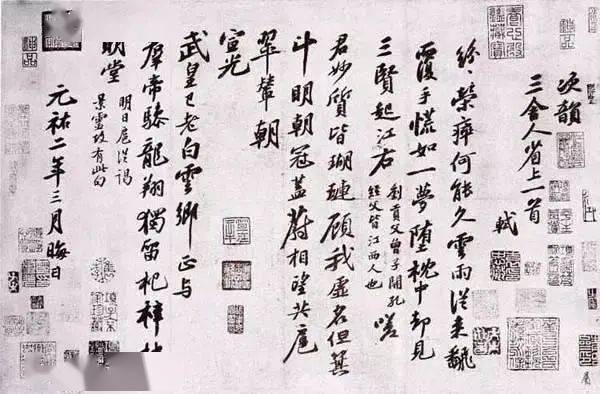 次韻
三舍人省上一首
軾
紛〻榮瘁何能久雲雨從来翻
覆手慌如一夢墮枕中却見
三賢起江右
劉貢父曾子開孔
經父皆江西人也
嗟
君妙質皆瑚璉顧我虛名但箕
斗明朝冠蓋蔚相望共扈
翠輦朝
宣光
武皇已老白雲鄉正與
羣帝驂龍翔獨留杞梓
明堂
明日扈從謁
景靈故有此句
元祐二年三月晦日